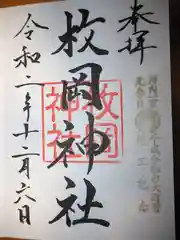 奉拝
枚岡神社
枚岡
神社
令和二年十二月六日